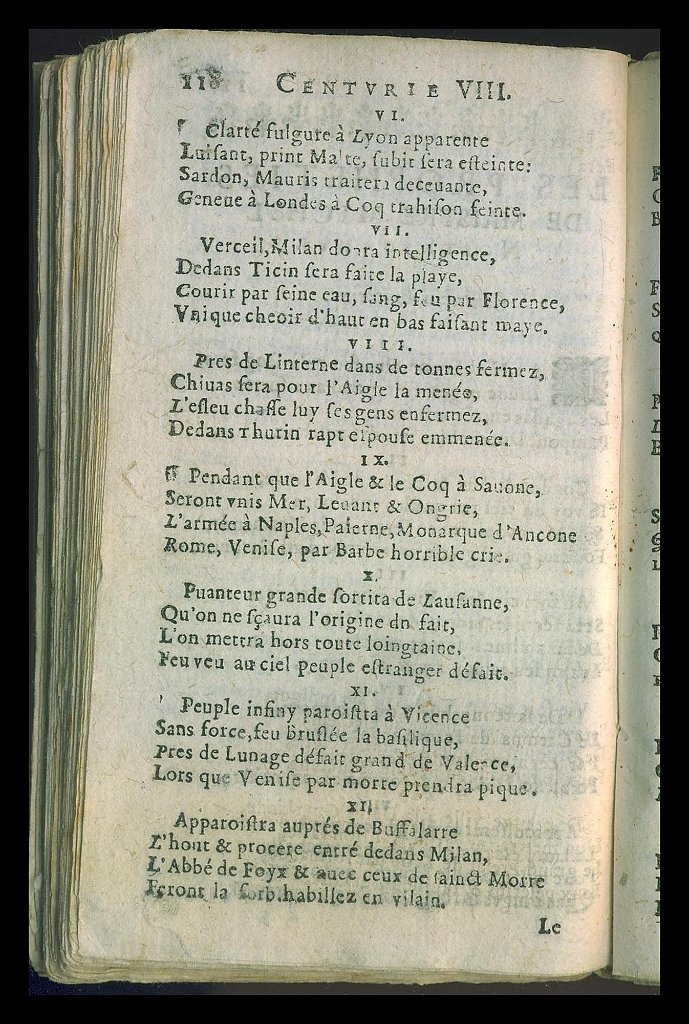 118 CENTVRIE VIII.
VI.
Clarté fulgure à Lyon apparente
Luisant, print Malte, subit sera esteinte:
Sardon, Mauris traitera deceuante,
Geneue à Londes à Coq trahison feinte.
VII.
Verceil, Milan donra intelligence,
Dedans Ticin sera faite la playe,
Courir par seine eau, sang, feu par Florence,
Vnique cheoir d'haut en bas faisant maye.
VIII.
Pres de Linterne dans de tonnes fermez,
Chiuas sera pour l'Aigle la menée,
L'esleu chasse luy ses gens enfermez,
Dedans Thurin rapt espouse emmenée.
IX.
Pendant que l'Aigle & le Coq à Sauone,
Seront vnis Mer, Leuant & Ongrie,
L'armée à Naples, Palerne, Monarque d'Ancone
Rome, Venise, par Barbe horrible crie.
X.
Puanteur grande sortita de Lausanne,
Qu'on ne sçaura l'origine dn fait,
L'on mettra hors toute loingtaine,
Feu veu au ciel peuple estranger défait.
XI.
Peuple infiny paroistra à Vicence
Sans force, feu bruslée la basilique,
Pres de Lunage défait grand de Valence,
Lors que Venise par morte prendra pique.
XII.
Apparoistra auprés de Buffalarre
L'hout & procere entré dedans Milan,
L'Abbé de Foyx & auec ceux de sainct Morre
Feront la forb. habillez en vilain.
Le